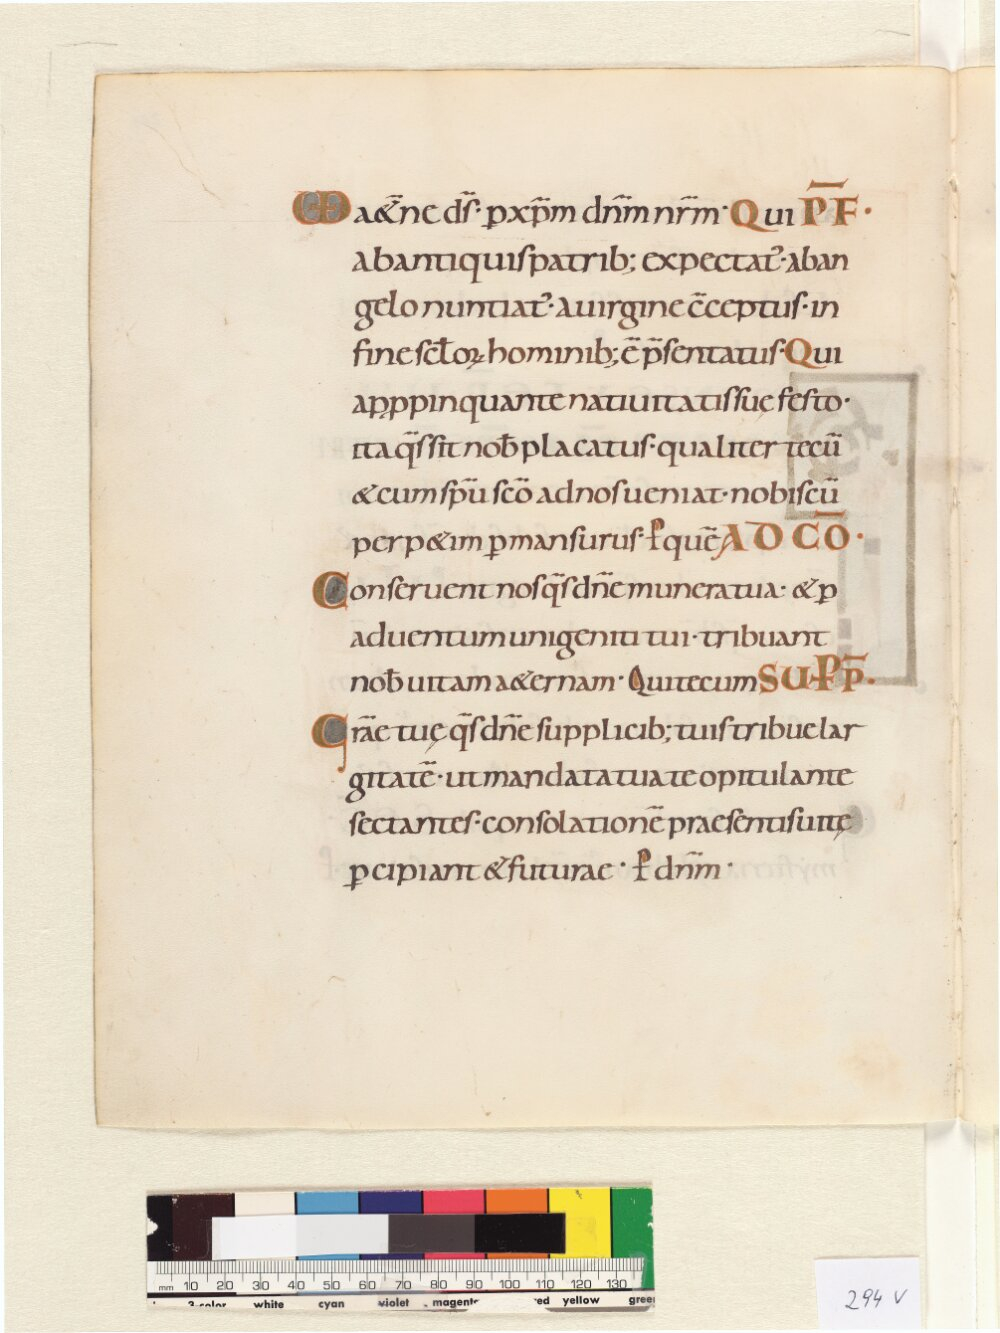 VD a&̄ne d̄s· ꝑ xp̄m dn̄m nr̄m· Qui P̄F̄·
ab antiquis patrib; expectat̄· ab an
gelo nuntiat̄· a uirgine c̄ceptus· in
fine sc̄loꝝ hominib; ē p̄sentatus· Qui
appropinquante natiuitatis suę festo·
ita q̄s sit nob̄ placatus· qualiter tecū
& cum sp̄u sc̄o ad nos ueniat· nobiscū
perp&im ꝑmansurus· ꝑ quē AD CŌ·
Conseruent nos q̄s dn̄e munera tua· & ꝑ
aduentum unigeniti tui· tribuant
nob̄ uitam a&ernam· Qui tecum SU·P̄P̄·
Gr̄ae tuę q̄s dn̄e supplicib; tuis tribue lar
gitatē· ut mandata tua te opitulante
sectantes· consolationē praesentis uitę
ꝑcipiant & futurae· ꝑ dn̄m·
mm 10 20 30 40 50 60 70 80 90 100 110 120 130
3-color white cyan violet magenta red yellow green
294 v